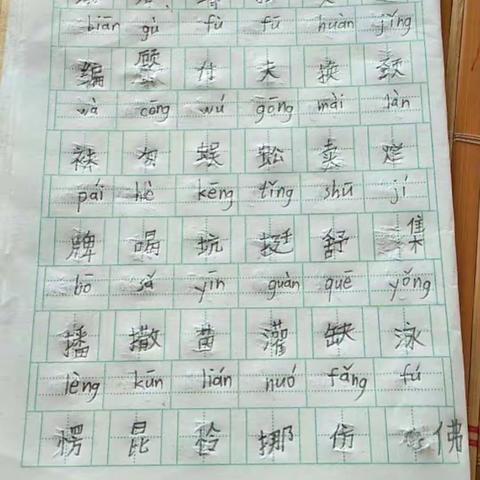 biān gù fù fū huàn jǐng
编 顾 付 夫 换 颈
wà cōng wú gōng mài làn
袜 匆 蜈 蚣 卖 烂
pái hè kēng tǐng shū jí
牌 喝 坑 挺 舒 集
bō sǎ yīn guàn quē yǒng
播 撒 茵 灌 缺 泳
lèng kūn lián nuó fǎng fú
愣 昆 怜 挪 仿 佛